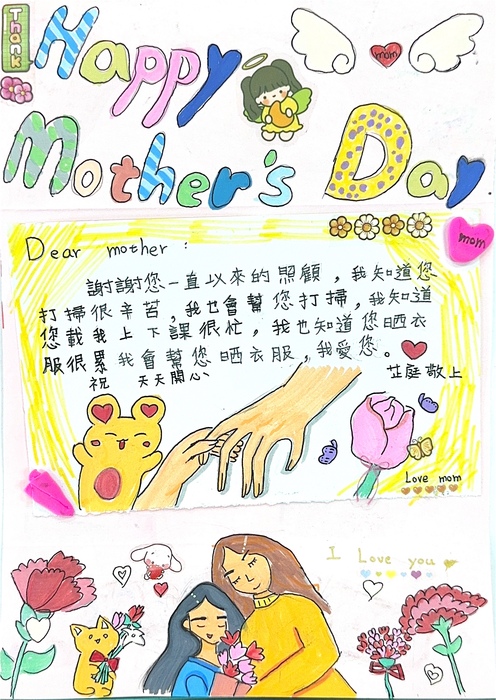 Thank
Happy
mom
Mother's Day
mom
Dear mother :
謝謝您一直以來的照顧，我知道您
打掃很辛苦，我也會幫您打掃，我知道
您載我上下課很忙，我也知道您晒衣
服很累我會幫您晒衣服，我愛您。
祝 天天開心
芷庭敬上
Love mom
I Love you